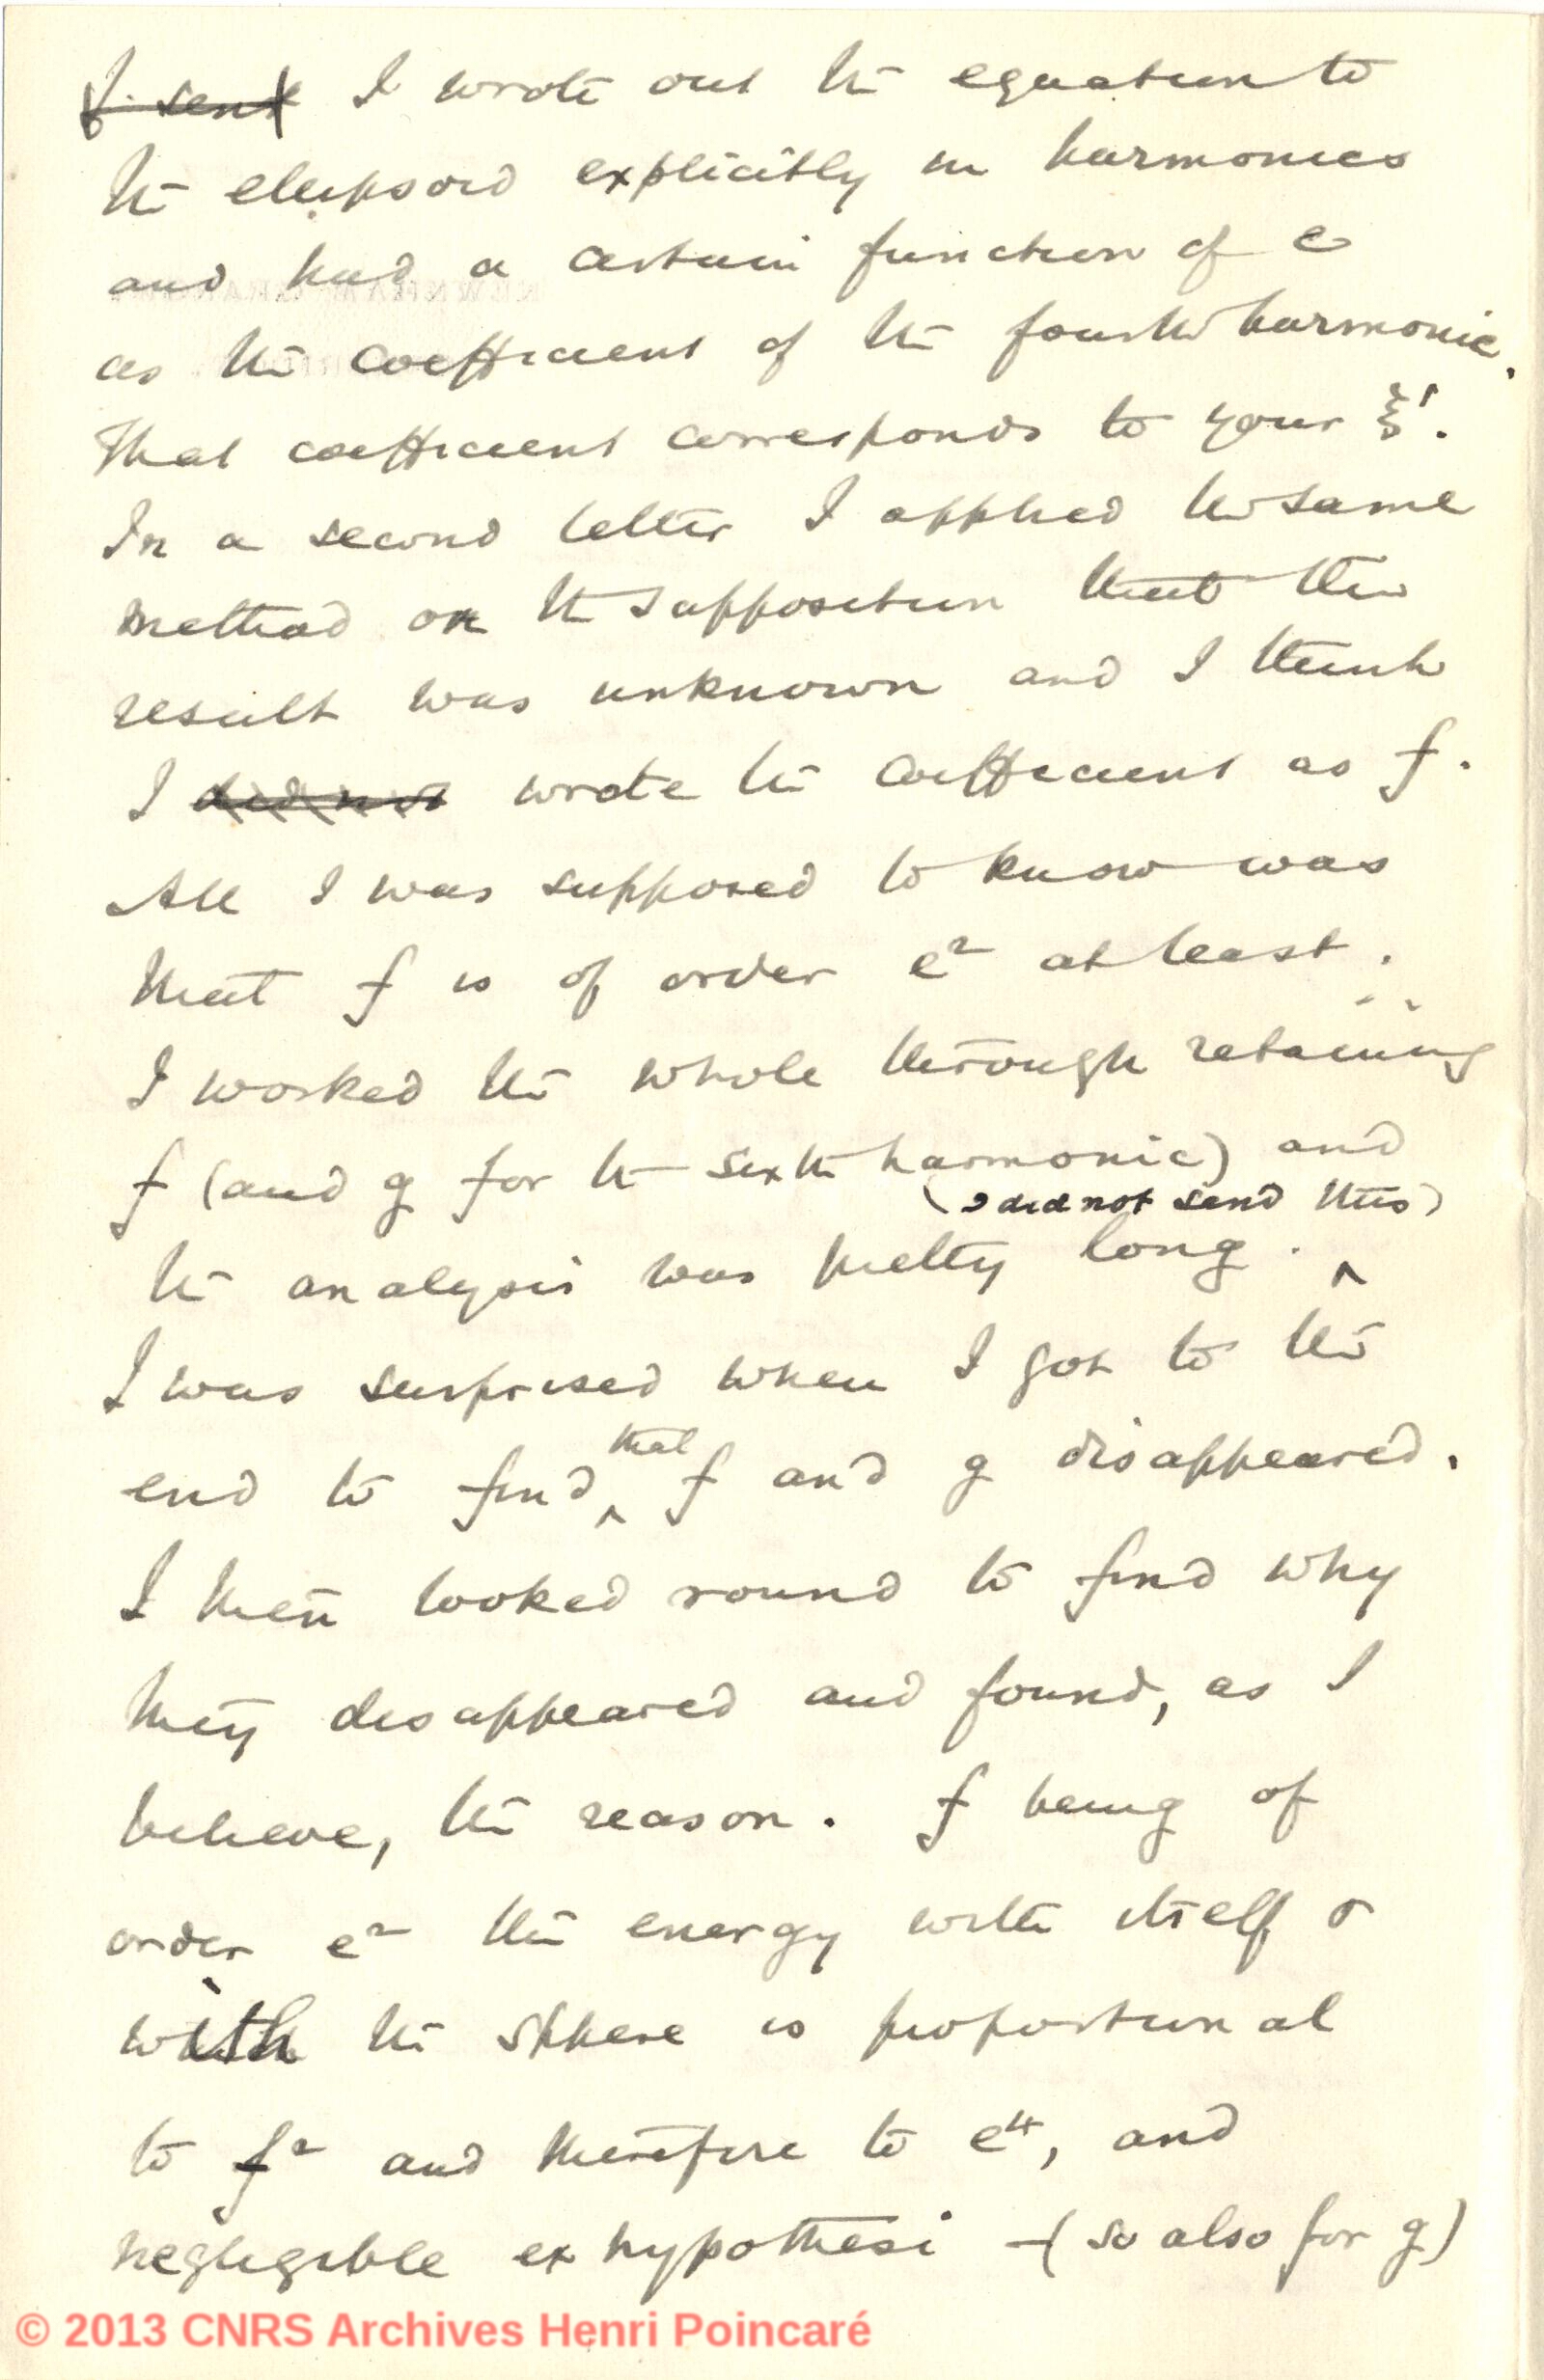 I sent I wrote out the equation to
the ellipsoid explicitly in harmonics
and had a certain function of e
as the coefficient of the fourth harmonic.
That coefficient corresponds to your ξ'.
In a second letter I applied the same
method on the supposition that the
result was unknown and I think
I did not wrote the coefficient as f.
All I was supposed to know was
that f is of order e² at least.
I worked the whole through retaining
f (and g for the sixth harmonic) and
(I did not send this)
the analysis was pretty long.
I was surprised when I got to the
end to find that f and g disappeared.
I then looked round to find why
they disappeared and found, as I
believe, the reason. f being of
order e² the energy with itself &
with the sphere is proportional
to f² and therefore to e⁴, and
negligible ex hypothesi – (so also for g)
© 2013 CNRS Archives Henri Poincaré